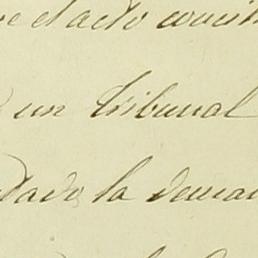 el acto conci
un Tribunal
dado, la deman